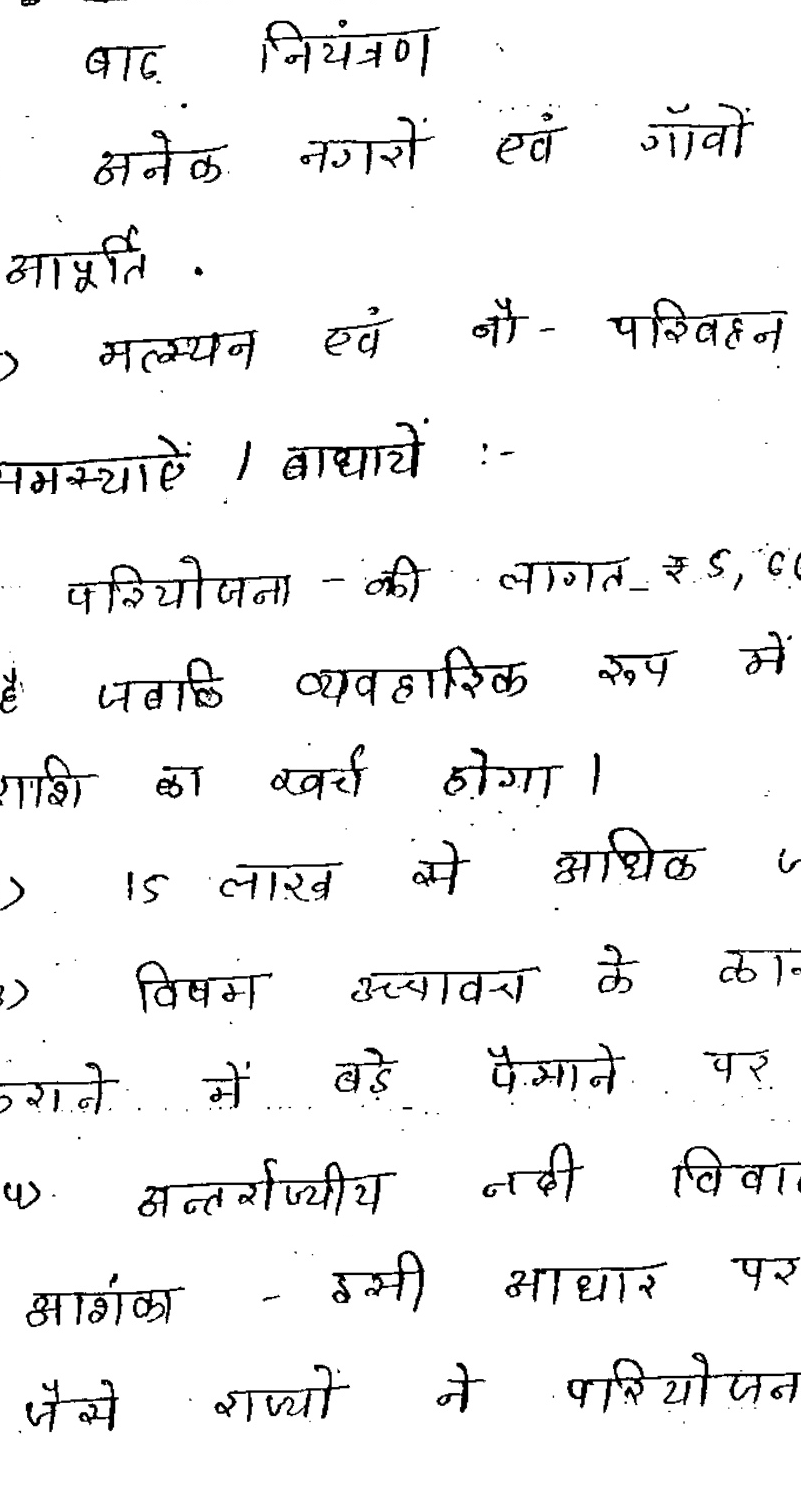 बाढ़ नियंत्रण
अनेक नगरों एवं गाँवों
आपूर्ति .
मत्स्यन एवं नौ - परिवहन
समस्याऐं / बाधायें :-
परियोजना - की लागत - ₹ 5, 60
है जबकि व्यवहारिक रूप में
राशि का खर्च होगा ।
15 लाख से अधिक ज
3) विषम उच्चावच के कार
कराने में बड़े पैमाने पर
4) अन्तर्राज्यीय नदी विवा
आशंका - इसी आधार पर
जैसे राज्यों ने परियोजन